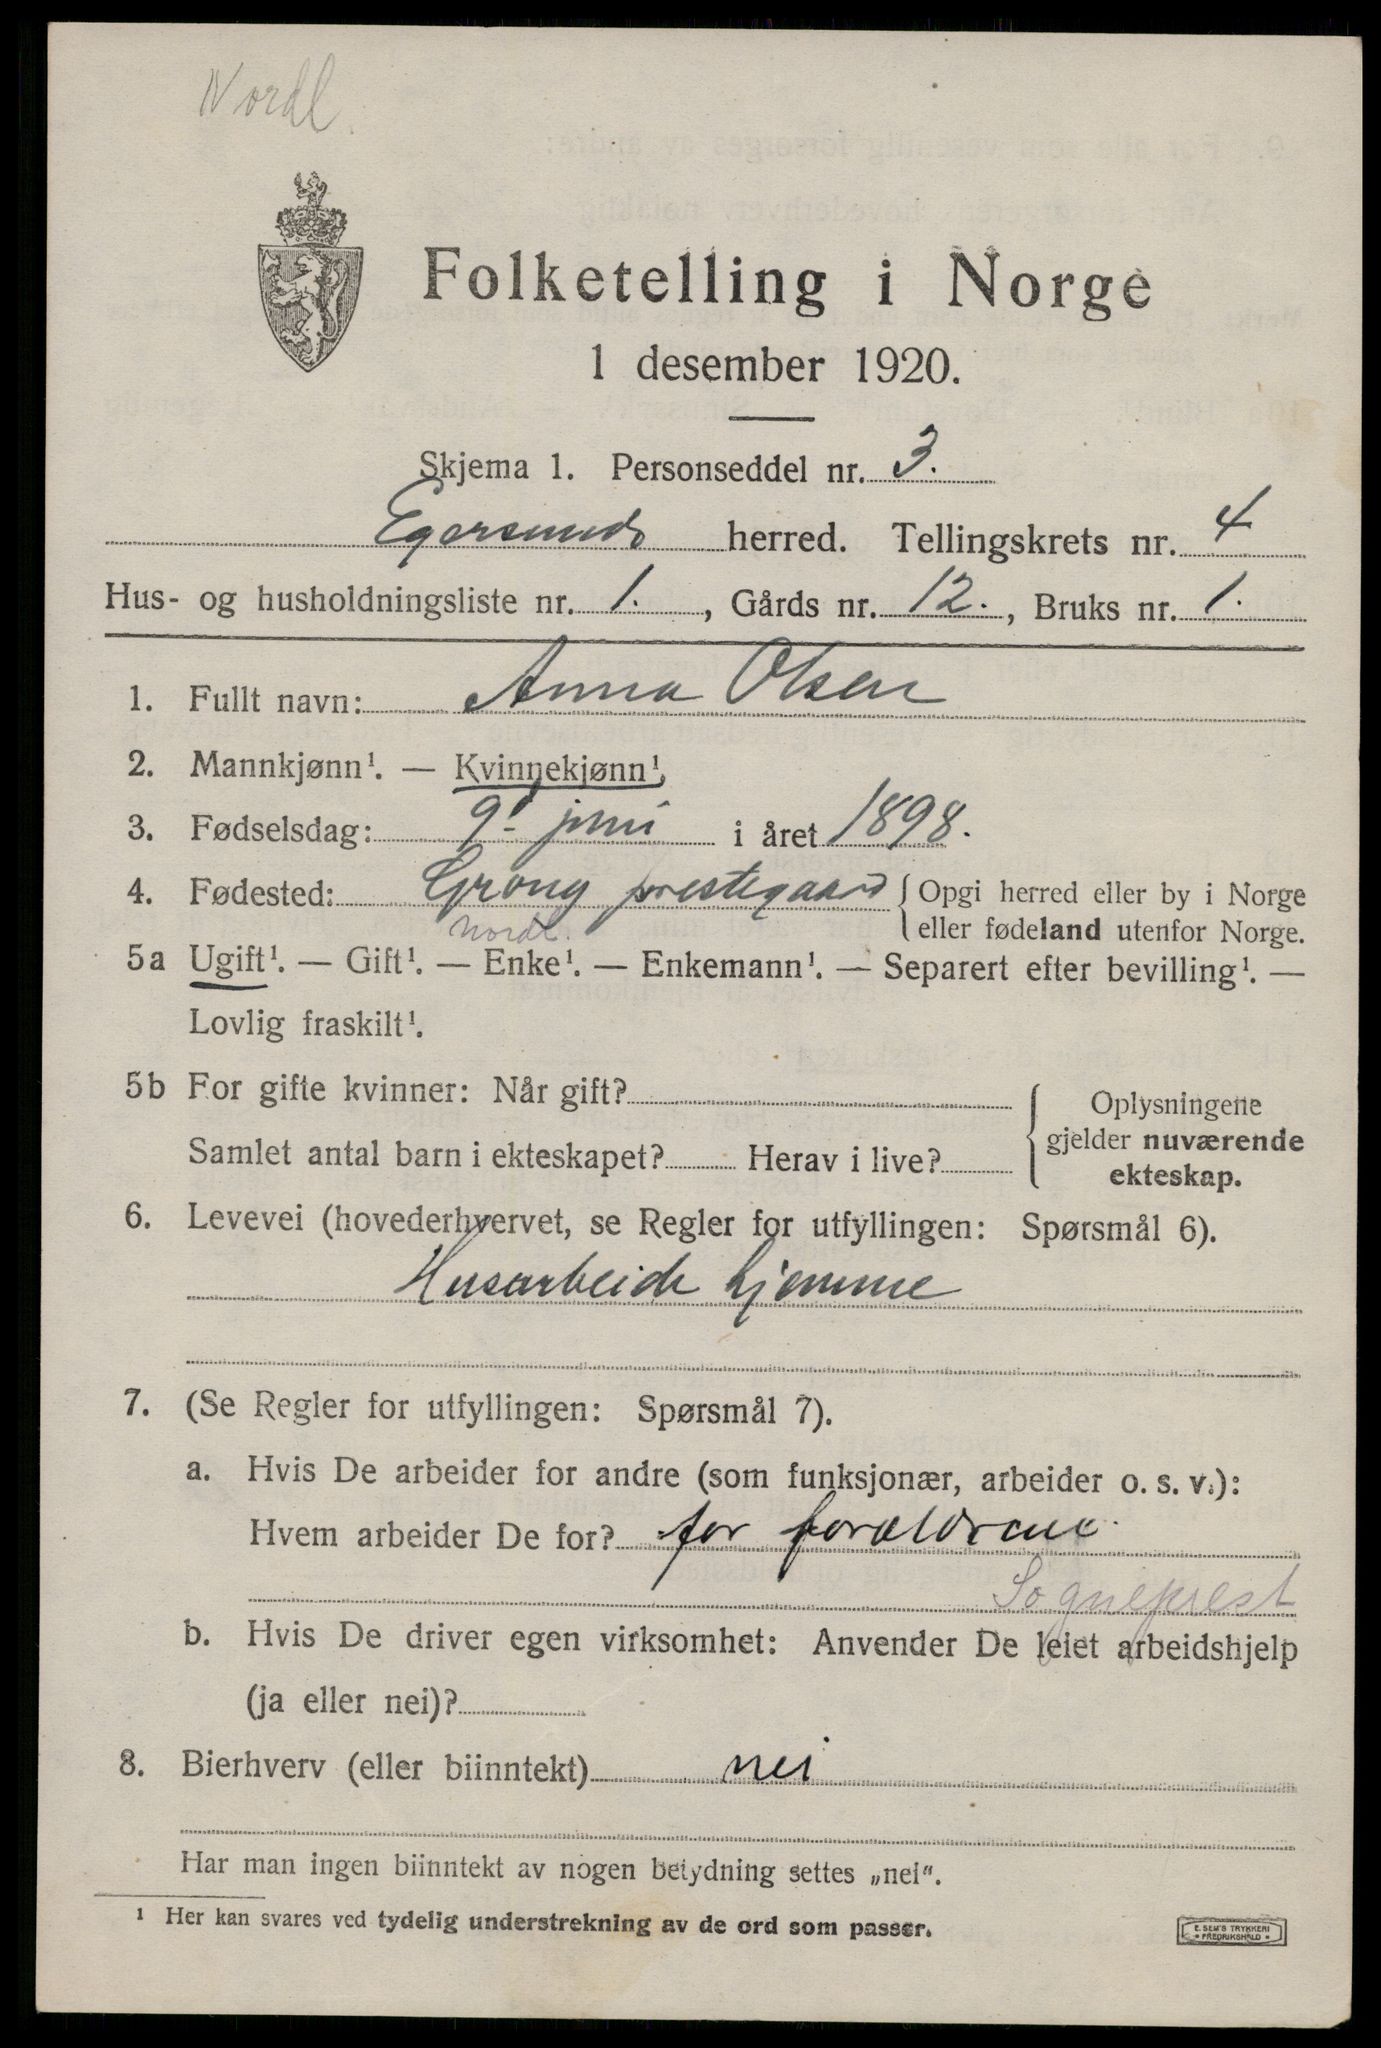 Nordl.
Folketelling i Norge
1 desember 1920.
Skjema 1. Personseddel nr. 3.
Egersunds herred. Tellingskrets nr. 4
Hus- og husholdningsliste nr. 1. , Gårds nr. 12. , Bruks nr. 1.
1. Fullt navn: Anna Olsen
2. Mannkjønn¹. — Kvinnekjønn¹.
3. Fødselsdag: 9d juni i året 1898.
4. Fødested: Grong prestegaard { Opgi herred eller by i Norge
Nordl. eller fødeland utenfor Norge.
5a Ugift¹. — Gift¹. — Enke¹. — Enkemann¹. — Separert efter bevilling¹. —
Lovlig fraskilt¹.
5b For gifte kvinner: Når gift? { Oplysningene
gjelder nuværende
Samlet antal barn i ekteskapet? Herav i live? ekteskap.
6. Levevei (hovederhvervet, se Regler for utfyllingen: Spørsmål 6).
Husarbeide hjemme
7. (Se Regler for utfyllingen: Spørsmål 7).
a. Hvis De arbeider for andre (som funksjonær, arbeider o. s. v.):
Hvem arbeider De for? for forældrene.
Sogneprest
b. Hvis De driver egen virksomhet: Anvender De leiet arbeidshjelp
(ja eller nei)?
8. Bierhverv (eller biinntekt) nei
Har man ingen biinntekt av nogen betydning settes „nei“.
¹ Her kan svares ved tydelig understrekning av de ord som passer.
E. SEM'S TRYKKERI
• FREDRIKSHALD •